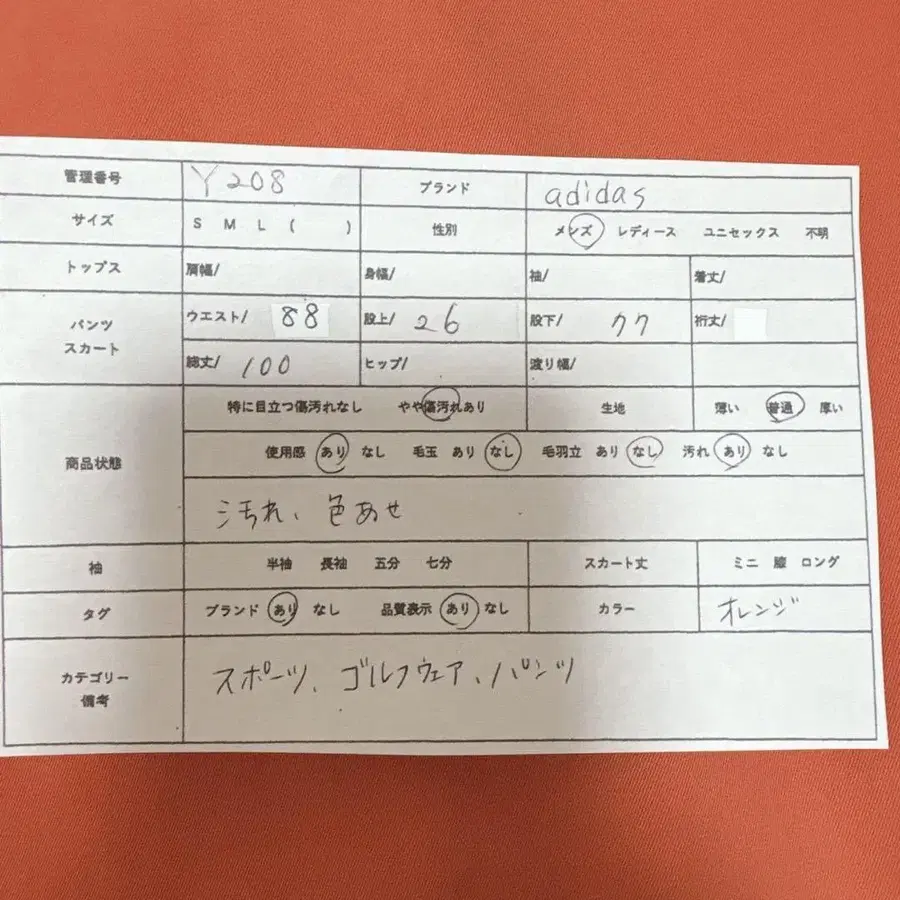 管理番号 Y208 ブランド adidas
サイズ S M L ( ) 性別 メンズ レディース ユニセックス 不明
トップス 肩幅/ 身幅/ 袖/ 着丈/
パンツ スカート ウエスト/ 88 股上/ 26 股下/ 77 裄丈/
総丈/ 100 ヒップ/ 渡り幅/
商品状態 特に目立つ傷汚れなし やや傷汚れあり 生地 薄い 普通 厚い
使用感 あり なし 毛玉 あり なし 毛羽立 あり なし 汚れ あり なし
汚れ、色あせ
袖 半袖 長袖 五分 七分 スカート丈 ミニ 膝 ロング
タグ ブランド あり なし 品質表示 あり なし カラー オレンジ
カテゴリー 備考 スポーツ、ゴルフウェア、パンツ